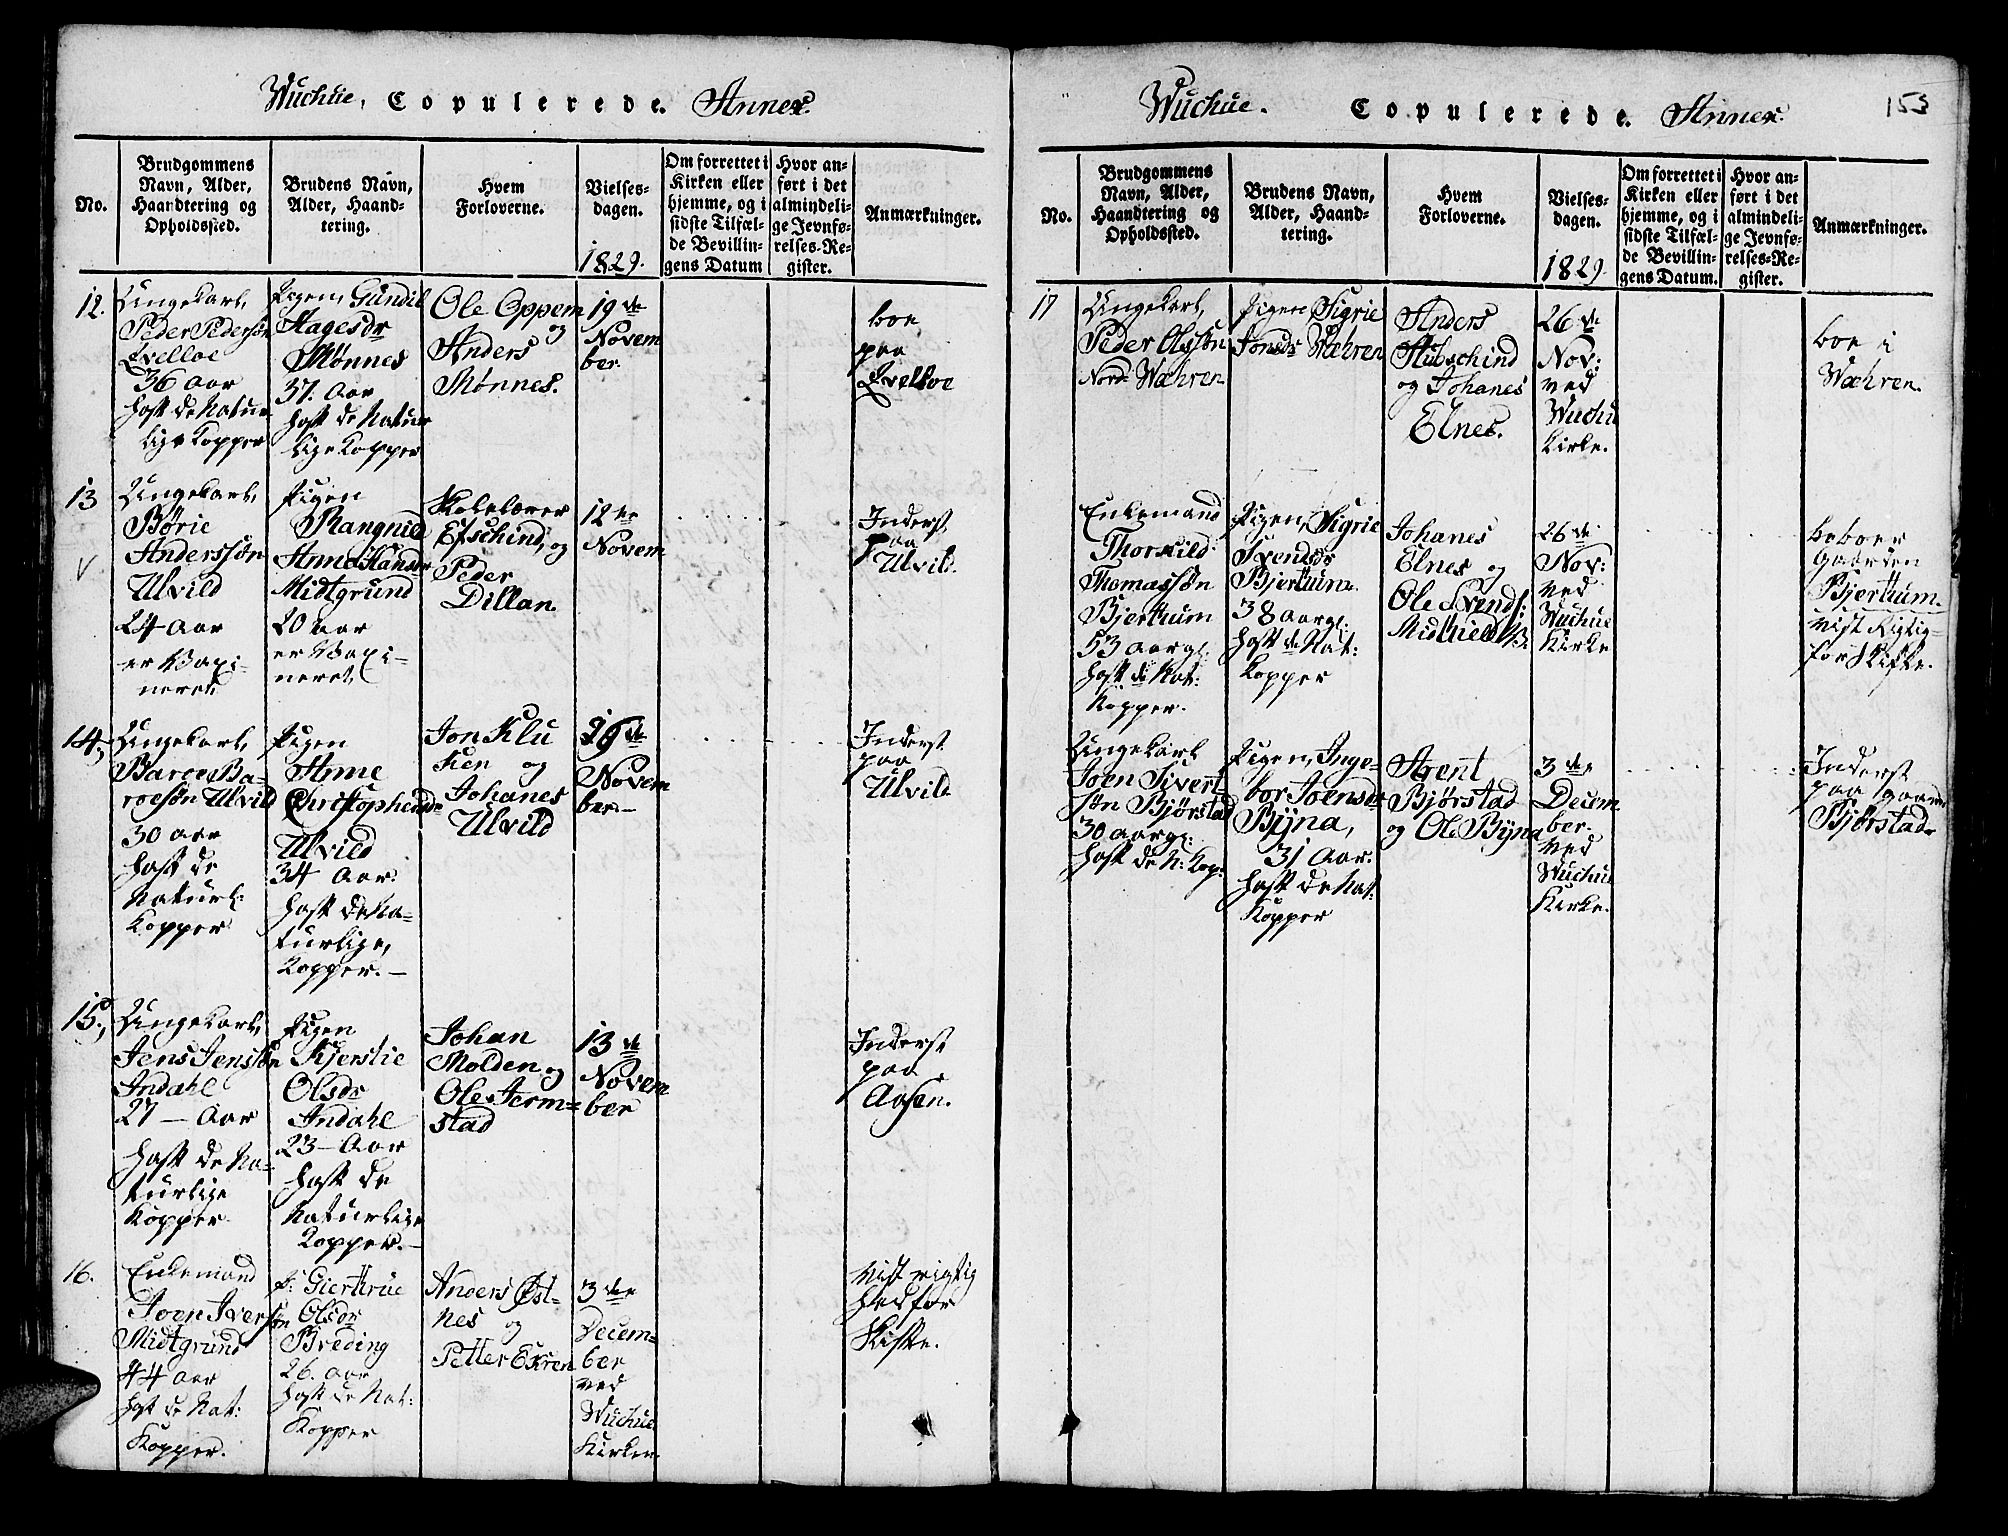 Wuchue. Copulerede. Annex.
No.
Brudgommens
Navn, Alder,
Haandtering og
Opholdssted.
Brudens Navn,
Alder, Haand-
tering.
Hvem
Forloverne.
Vielses-
dagen.
1829.
Om forrettet i
Kirken eller
hjemme, og i
sidste Tilfæl-
de Bevillin-
gens Datum
Hvor an-
ført i det
almindeli-
ge Jevnfø-
relses-Re-
gister.
Anmærkninger.
12.
Ungekarl,
Peder Pedersøn
Qvelloe
36 Aar
haft de Natur
lige Kopper
Pigen, Gundil
Aagesdr
Mønnes
37. Aar
haft de Natur
lige Kopper
Ole Oppem
og
Anders
Mønnes.
19de
Novem
ber.
boe
paa
Qvelloe
13
Ungekarl,
Børie
Anderssøn
Ulvild
24 Aar
er Vaxi-
neret
Pigen
Rangnild
Arne Hansdr
Midtgrund
20 aar
er Vaxi-
neret
Skolelærer
Efschind, og
Peder
Dillan.
12te
Novem
Inderst
paa
Ulvild.
14.
Ungekarl,
Baroe Ba-
roesøn Ulvild
30 aar
haft de
Naturl:
Kopper
Pigen
Anne
Christophersdr
Ulvild
34 Aar
haft de Na-
turlige,
Kopper.-
Jon Klu
ken og
Johanes
Ulvild
26de
Novem
ber-
Inderst
paa
Ulvild
15.
Ungekarl,
Jens Jenssøn
Indahl
27 - Aar
haft de Na-
turlige
Kopper
Pigen
Kjerstie
Olsdr
Indahl
23 - Aar
haft de
Naturlige
Kopper.-
Johan
Molden og
Ole Jerm-
stad
13de
Novem
ber
Inderst
paa
Aasen.
16.
Enkemand
Joen Iver
søn
Midtgrund
44 aar
haft de Nat:
Kopper.
P: Gierthrue
Olsdr
Breding
26. aar
haft de Nat:
Kopper
Anders Øst-
nes og
Petter Ekren
3die
Decem-
ber
ved
Wuchue
Kirken.
Vist rigtig
hed for
Skifte.
Wuchue. Copulerede. Annex. 153
No.
Brudgommens
Navn, Alder,
Haandtering og
Opholdssted.
Brudens Navn,
Alder, Haand-
tering.
Hvem
Forloverne.
Vielses-
dagen.
1829.
Om forrettet i
Kirken eller
hjemme, og i
sidste Tilfæl-
de Bevillin-
gens Datum.
Hvor an-
ført i det
almindeli-
ge Jevnfø-
relses-Re-
gister.
Anmærkninger.
17
Ungekarl,
Peder Olsøn
Nordr Wæhren
Pigen Sigrie
Jonsdr Wæhren
Anders
Stubschind
og Johanes
Elnes.
26de
Nov:
ved
Wuchu
Kirke.
boe i
Wæhren.
Enkemand
Thorkild
Thomassøn
Bjerthum
53 aargl:
haft de Nat:
Kopper.
Pigen, Sigrie
Svendsdr
Bjerthum
38 aargl:
haft de Nat:
Kopper
Johanes
Elnes og
Ole Svends:
26de
Nov:
ved
Wuchue
Kirke
beboer
Gaarden
Bjerthum.
Vist Rigtig-
for Skifte.
Ungekarl
Joen Sivert
søn Bjørstad
30 aargl:
haft de N: Kop:
Pigen, Inge-
bor Joensdr
Bÿna,
31 Aar.
haft de Nat:
Kopper
Arent
Bjørstad
og Ole Bÿna
3die
Decem
ber.
ved
Wuchue
Kirke.
Inderst
paa gaarden
Bjørstad.